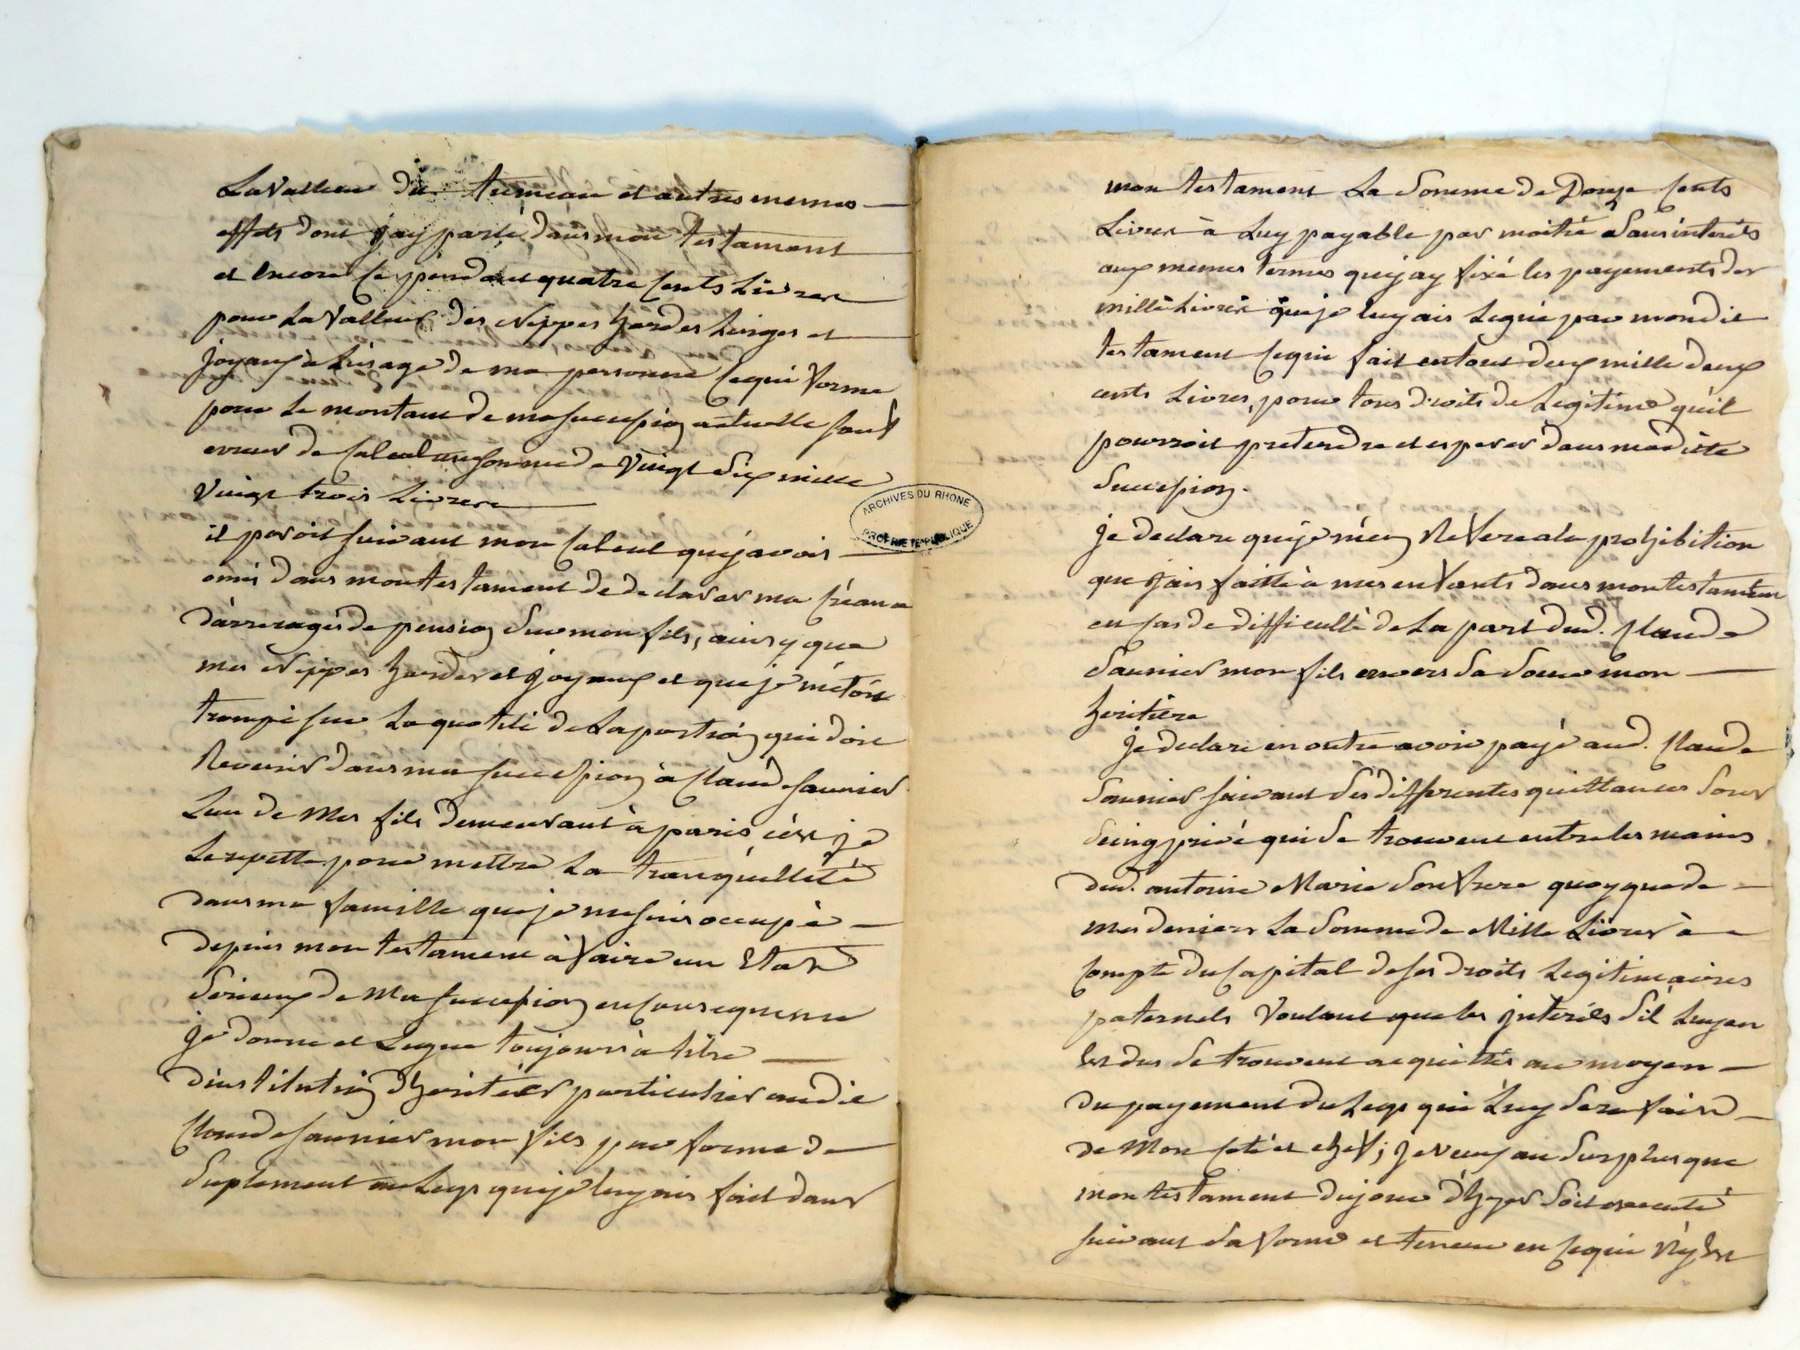 La Valleur du trumeau et autres memes
effets dont jay parlé dans mon testament
et encore cependant quatre cents Livres
pour La Valleur des Nippes hardes Linges et
joyaux a Lusage de ma personne ce qui forme
pour Le montant de ma succession actuelle sauf
erreur de Calcul une somme de Vingt six mille
Vingt trois Livres
il paroit suivant mon Calcul que javois
omis dans mon testament de declarer ma créance
darrerages de pension sur mon fils, ainsy que
mes Nippes hardes et joyaux et que je métois
trompé sur La quotité de La portion qui doit
Revenir dans ma succession à Claude Saunier
Lun de Mes fils demeurant à paris icy je
Le repette pour mettre La tranquillité
dans ma famille que je me suis occupé
depuis mon testament à faire un Etat
Serieux de Ma succession en consequence
je donne et Legue toujours à titre
dinstitution dheritier particulier audit
Claude Saunier mon fils par forme de
Suplement au Legs que je luy ais fait dans
mon testament La Somme de Douze Cents
Livres à Luy payable par moitié Sans interets
aux memes termes que jay fixé les payements des
mille Livres que je luy ais Legué par mondit
testament ce qui fait en tout deux mille deux
cents Livres, pour tous droits de Legitime quil
pourroit pretendre et esperer dans madite
Succession.
je declare que je méen Refere a la prohibition
que jais faitte à mes enfants dans mon testament
en Cas de difficulté de La part dud. Claude
Saunier mon fils envers Sa Soeur mon
heritiere
je declare en outre avoir payé aud. Claude
Saunier suivant Ses differentes quittances Sous
Seing privé qui Se trouvent entre les mains
dud. antoine Marie Son frere quoyque de
mes deniers La Somme de Mille Livres à
Compte du Capital de ses droits Legitimaires
paternels Voulant que les jnterêts S'il Luy en
est dus Se trouvent acquittés au moyen
du payement du Legs qui Luy Sera fait
de Mon coté et chef; je veux au Surplus que
mon testament du jour d'hyer Soit executé
suivant Sa forme et teneur en ce qui N'y est
ARCHIVES DU RHONE
PROPRIETE PUBLIQUE